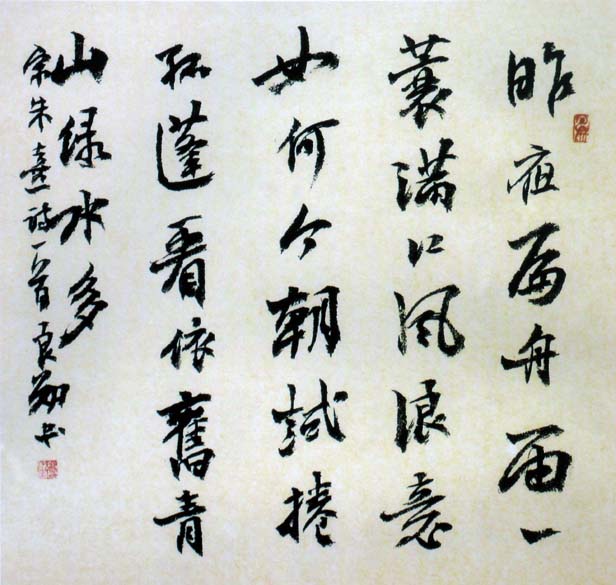 昨夜扁舟雨一
蓑满江風浪意
如何今朝試捲
孤蓬看依舊青
山绿水多
宋朱熹诗一首 书